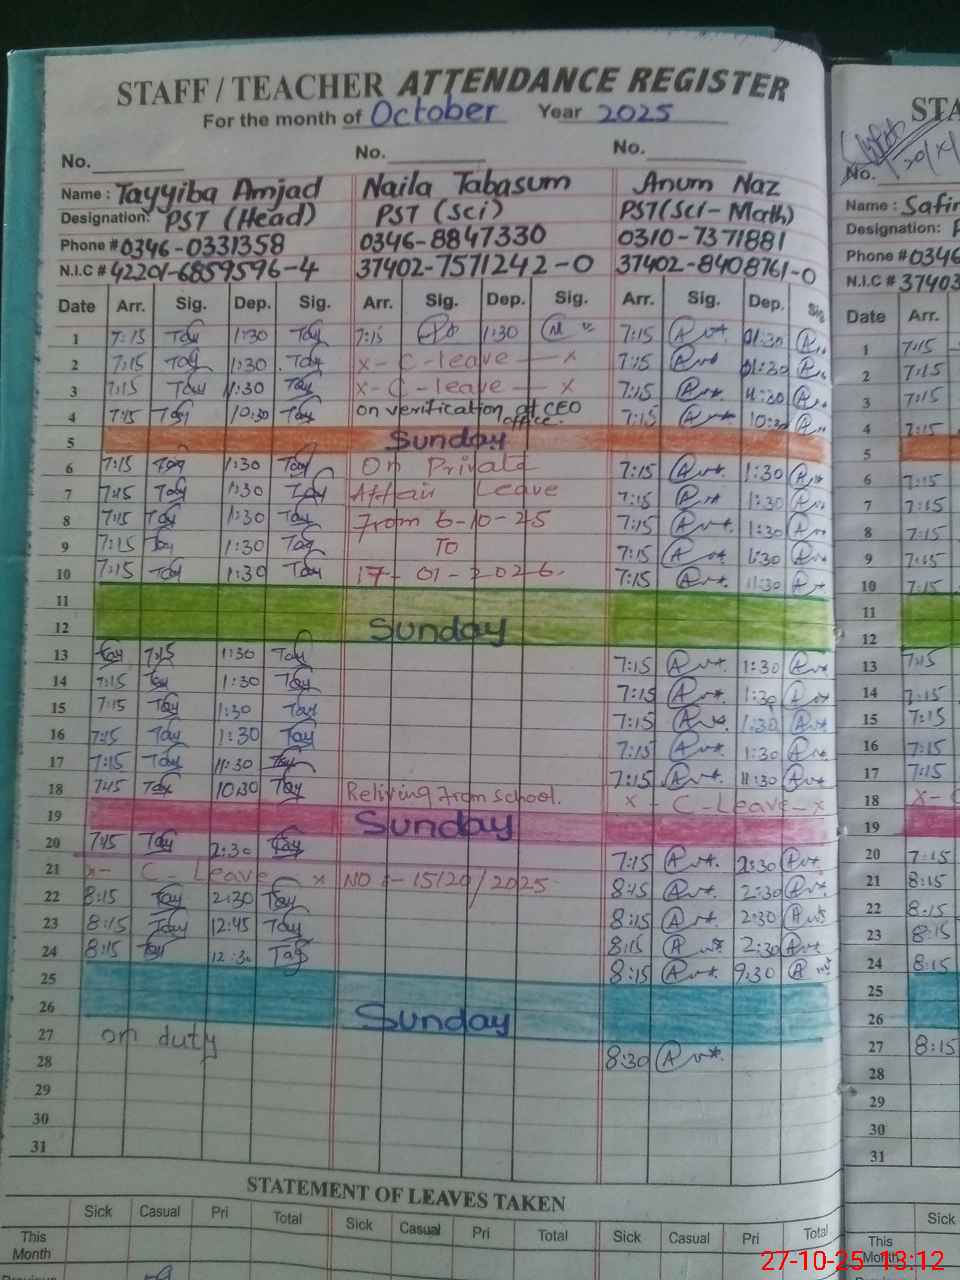 STAFF / TEACHER ATTENDANCE REGISTER
For the month of October Year 2025
No. No. No.
Name : Tayyiba Amjad Naila Tabasum Anum Naz
Designation: PST (Head) PST (Sci) PST (Sci-Math)
Phone # 0346-0331358 0346-8847330 0310-7371881
N.I.C # 42201-6859596-4 37402-7571242-0 37402-8408761-0
Date Arr. Sig. Dep. Sig. Arr. Sig. Dep. Sig. Arr. Sig. Dep. Sig
1 7:15 Tay 1:30 Tay 7:15 1:30 7:15 01:30
2 7:15 Tay 1:30 Tay x-C-leave-x 7:15 01:30
3 7:15 Tay 1:30 Tay x-C-leave-x 7:15
4 7:15 Tay 10:30 Tay on verification at CEO office. 7:15 10:30
5 Sunday
6 7:15 Tay 1:30 Tay On Private 7:15 1:30
7 7:15 Tay 1:30 Tay Affair Leave 7:15 1:30
8 7:15 Tay 1:30 Tay From 6-10-25 7:15 1:30
9 7:15 Tay 1:30 Tay To 7:15 1:30
10 7:15 Tay 1:30 Tay 17-01-2026. 7:15 1:30
11
12 Sunday
13 Tay 7:15 1:30 Tay 7:15 1:30
14 7:15 Tay 1:30 Tay 7:15 1:30
15 7:15 Tay 1:30 Tay 7:15 1:30
16 7:15 Tay 1:30 Tay 7:15 1:30
17 7:15 Tay 11:30 Tay 7:15 11:30
18 7:15 Tay 10:30 Tay Reliving from school. x-C-Leave-x
19 Sunday
20 7:15 Tay 2:30 Tay 7:15 2:30
21 x-C-Leave-x NO :-15120/2025 8:15 2:30
22 8:15 Tay 2:30 Tay 8:15 2:30
23 8:15 Tay 12:45 Tay 8:15 2:30
24 8:15 Tay 12:30 Tay 8:15 9:30
25
26 Sunday
27 on duty 8:30
28
29
30
31
STATEMENT OF LEAVES TAKEN
Sick Casual Pri Total Sick Casual Pri Total Sick Casual Pri Total
This Month
STA
No.
Name : Safi
Designation:
Phone # 0346
N.I.C # 37403
Date Arr.
1 7:15
2 7:15
3 7:15
4 7:15
5
6 7:15
7 7:15
8 7:15
9 7:15
10 7:15
11
12
13 7:15
14 7:15
15 7:15
16 7:15
17 7:15
18 x-C
19
20 7:15
21 8:15
22 8:15
23 8:15
24 8:15
25
26
27 8:15
28
29
30
31
Sick
This Month
27-10-25 13:12